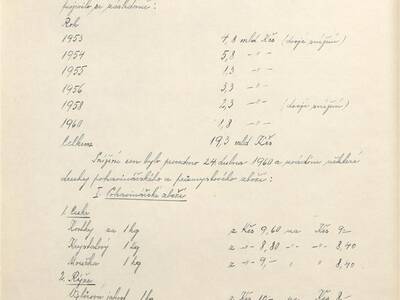 projevilo se následovně:
Rok
1953 4,8 mld Kčs (dvoje snížení)
1954 5,8 -"-
1955 1,3 -"-
1956 3,3 -"-
1958 2,3 -"- (dvojí snížení)
1960 1,8 -"-
Celkem 19,3 mld Kčs
Snížení cen bylo provedeno 24. dubna 1960 a uvádím některé
druhy potravinářského a průmyslového zboží:
I. Potravinářské zboží
1. Cukr
Kostky za 1 kg z Kčs 9,60 na Kčs 9.-
Krystalový 1 kg z -"- 8,80 -"- -"- 8,40
Moučka 1 kg z -"- 9,- " " 8,40
2. Rýže
jakost 1 kg z Kčs 10.- na Kčs 8.-